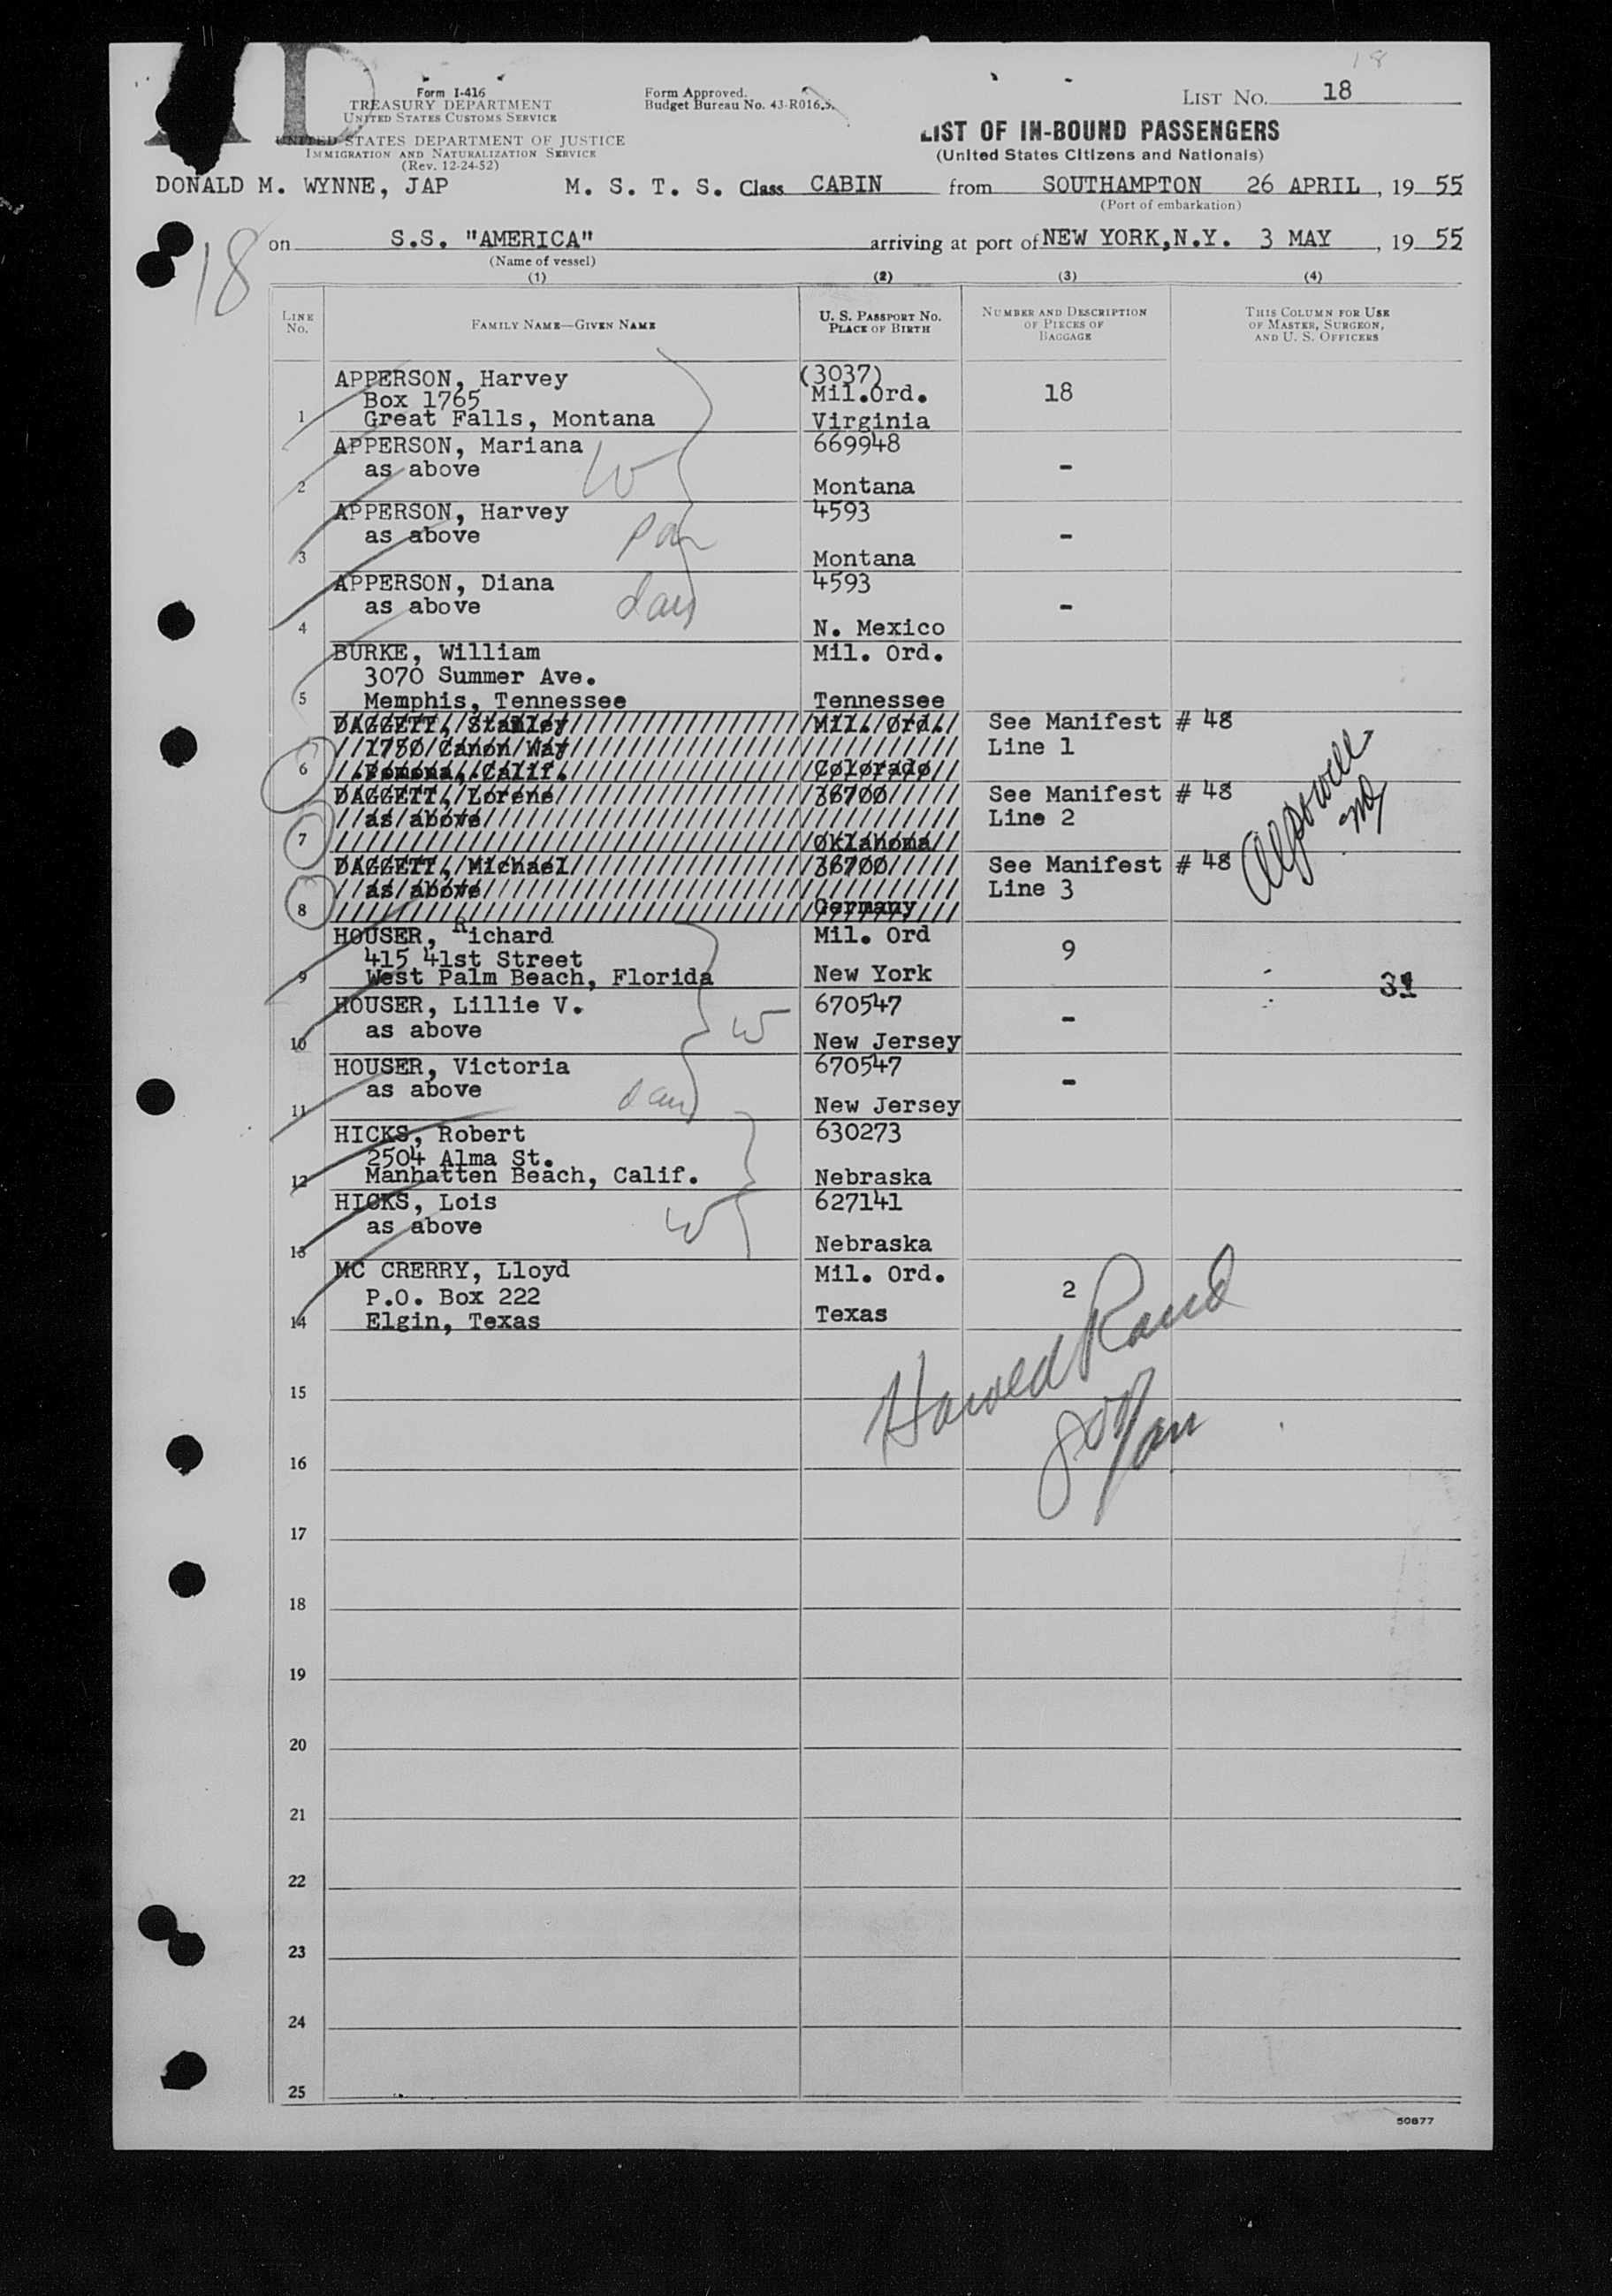 18
Form I-416
TREASURY DEPARTMENT
UNITED STATES CUSTOMS SERVICE
UNITED STATES DEPARTMENT OF JUSTICE
IMMIGRATION AND NATURALIZATION SERVICE
(Rev. 12-24-52)
Form Approved.
Budget Bureau No. 43-R016.5.
LIST NO. 18
LIST OF IN-BOUND PASSENGERS
(United States Citizens and Nationals)
DONALD M. WYNNE, JAP M. S. T. S. Class CABIN from SOUTHAMPTON 26 APRIL, 19 55
(Port of embarkation)
18
on S.S. "AMERICA" arriving at port of NEW YORK, N.Y. 3 MAY, 19 55
(Name of vessel)
(1) (2) (3) (4)
LINE No. FAMILY NAME—GIVEN NAME U. S. PASSPORT NO. PLACE OF BIRTH NUMBER AND DESCRIPTION OF PIECES OF BAGGAGE THIS COLUMN FOR USE OF MASTER, SURGEON, AND U. S. OFFICERS
APPERSON, Harvey (3037)
Box 1765 Mil.Ord. 18
1 Great Falls, Montana Virginia
APPERSON, Mariana 669948
as above W -
2 Montana
APPERSON, Harvey 4593
as above -
3 Montana
APPERSON, Diana 4593
as above dau -
4 N. Mexico
BURKE, William Mil. Ord.
3070 Summer Ave.
5 Memphis, Tennessee Tennessee
DAGGETT, Stanley Mil. Ord. See Manifest # 48
1750 Canon Way Line 1
6 Pomona, Calif. Colorado
DAGGETT, Lorene 36700 See Manifest # 48
as above Line 2
7 Oklahoma
DAGGETT, Michael 36700 See Manifest # 48
as above Line 3
8 Germany
HOUSER, Richard Mil. Ord
415 41st Street 9
9 West Palm Beach, Florida New York
HOUSER, Lillie V. 670547
as above W -
10 New Jersey
HOUSER, Victoria 670547
as above dau -
11 New Jersey
HICKS, Robert 630273
2504 Alma St.
12 Manhatten Beach, Calif. Nebraska
HICKS, Lois 627141
as above W
13 Nebraska
MC CRERRY, Lloyd Mil. Ord.
P.O. Box 222 2
14 Elgin, Texas Texas
Harold Rand
15
16
17
18
19
20
21
22
23
24
25
50877